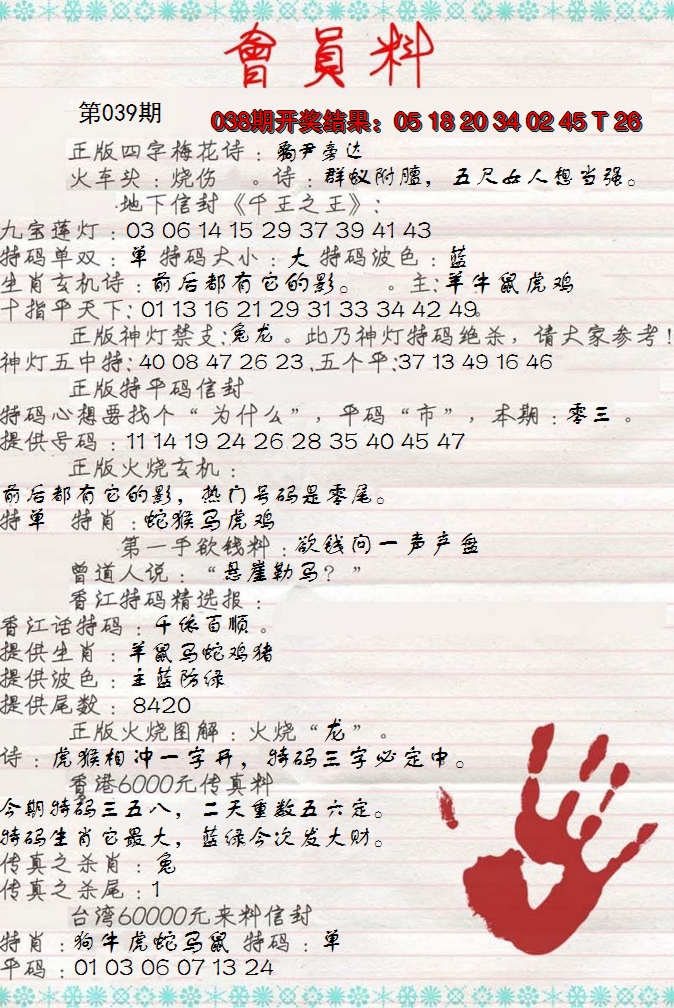 會員料
第039期
038期开奖结果：05 18 20 34 02 45 T 26
正版四字梅花诗：尹旁达
火车头：烧伤 。诗：群蚁附膻，五尺女人想当强。
地下信封《千王之王》：
九宝莲灯：03 06 14 15 29 37 39 41 43
特码单双：单 特码大小：大 特码波色：蓝
生肖玄机诗：前后都有它的影。 。主：羊牛鼠虎鸡
十指平天下：01 13 16 21 29 31 33 34 42 49。
正版神灯禁支：兔龙。此乃神灯特码绝杀，请大家参考！
神灯五中特：40 08 47 26 23 .五个平：37 13 49 16 46
正版特平码信封
特码心想要找个“为什么”，平码“市”，本期：零三。
提供号码：11 14 19 24 26 28 35 40 45 47
正版火烧玄机：
前后都有它的影，热门号码是零尾。
特单 特肖：蛇猴马虎鸡
第一手欲钱料：欲钱问一声声盘
曾道人说：“悬崖勒马？”
香江特码精选报：
香江话特码：千依百顺。
提供生肖：羊鼠马蛇鸡猪
提供波色：主蓝防绿
提供尾数：8420
正版火烧图解：火烧“龙”。
诗：虎猴相冲一字开，特码三字必定中。
香港6000元传真料
今期特码三五八，二天重数五六定。
特码生肖它最大，蓝绿今次发大财。
传真之杀肖：兔
传真之杀尾：1
台湾60000元来料信封
特肖：狗牛虎蛇马鼠 特码：单
平码：01 03 06 07 13 24